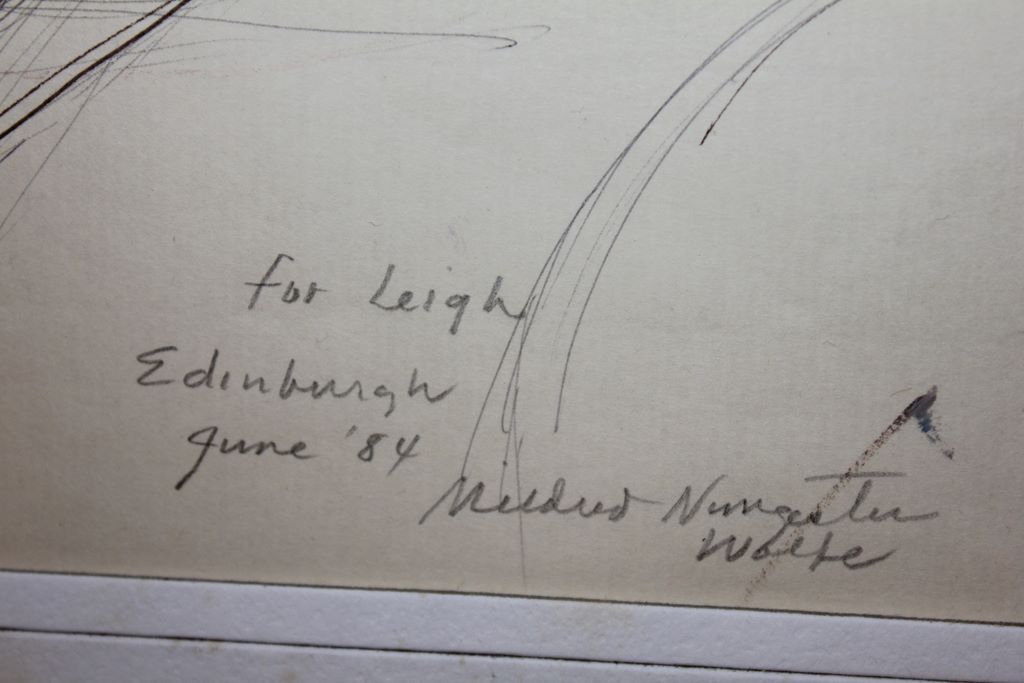 for Leigh
Edinburgh
June '84
Mildred Nungester
Wolfe